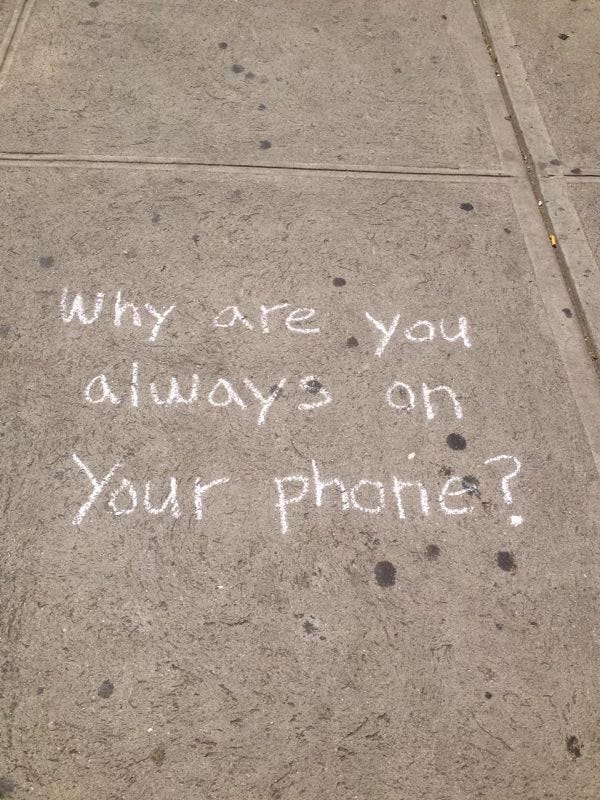 Why are you
always on
Your phone?